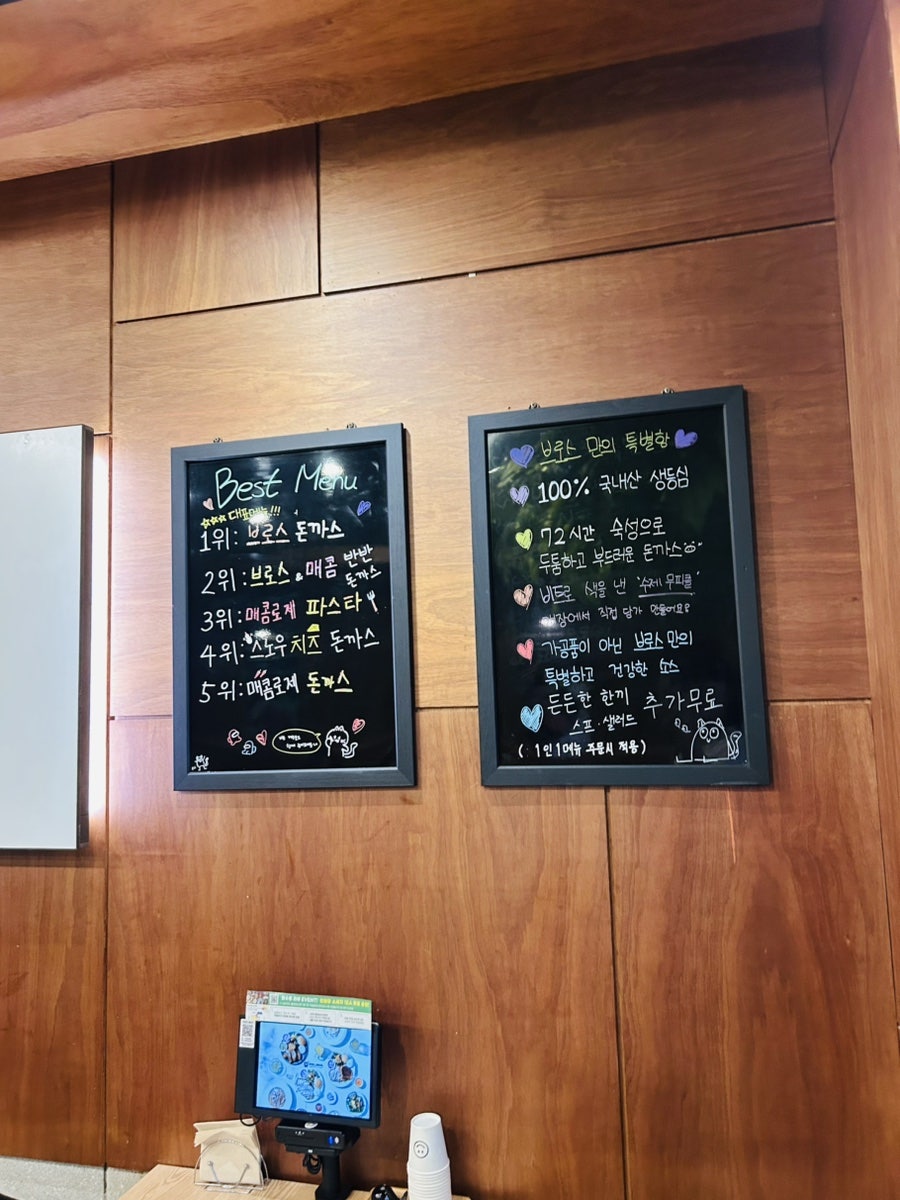 Best Menu
대표메뉴!!!
1위: 브로스 돈까스
2위: 브로스 & 매콤 반반
돈까스
3위: 매콤로제 파스타
4위: 스노우치즈 돈까스
5위: 매콤로제 돈까스
브로스 만의 특별함
100% 국내산 생등심
72시간 숙성으로
두툼하고 부드러운 돈까스
비트로 색을 낸 '수제 무피클'
매장에서 직접 담가 만들어요?
가공품이 아닌 브로스 만의
특별하고 건강한 소스
든든한 한끼 추가무료
스프·샐러드
(: 1인 1메뉴 주문시 적용)